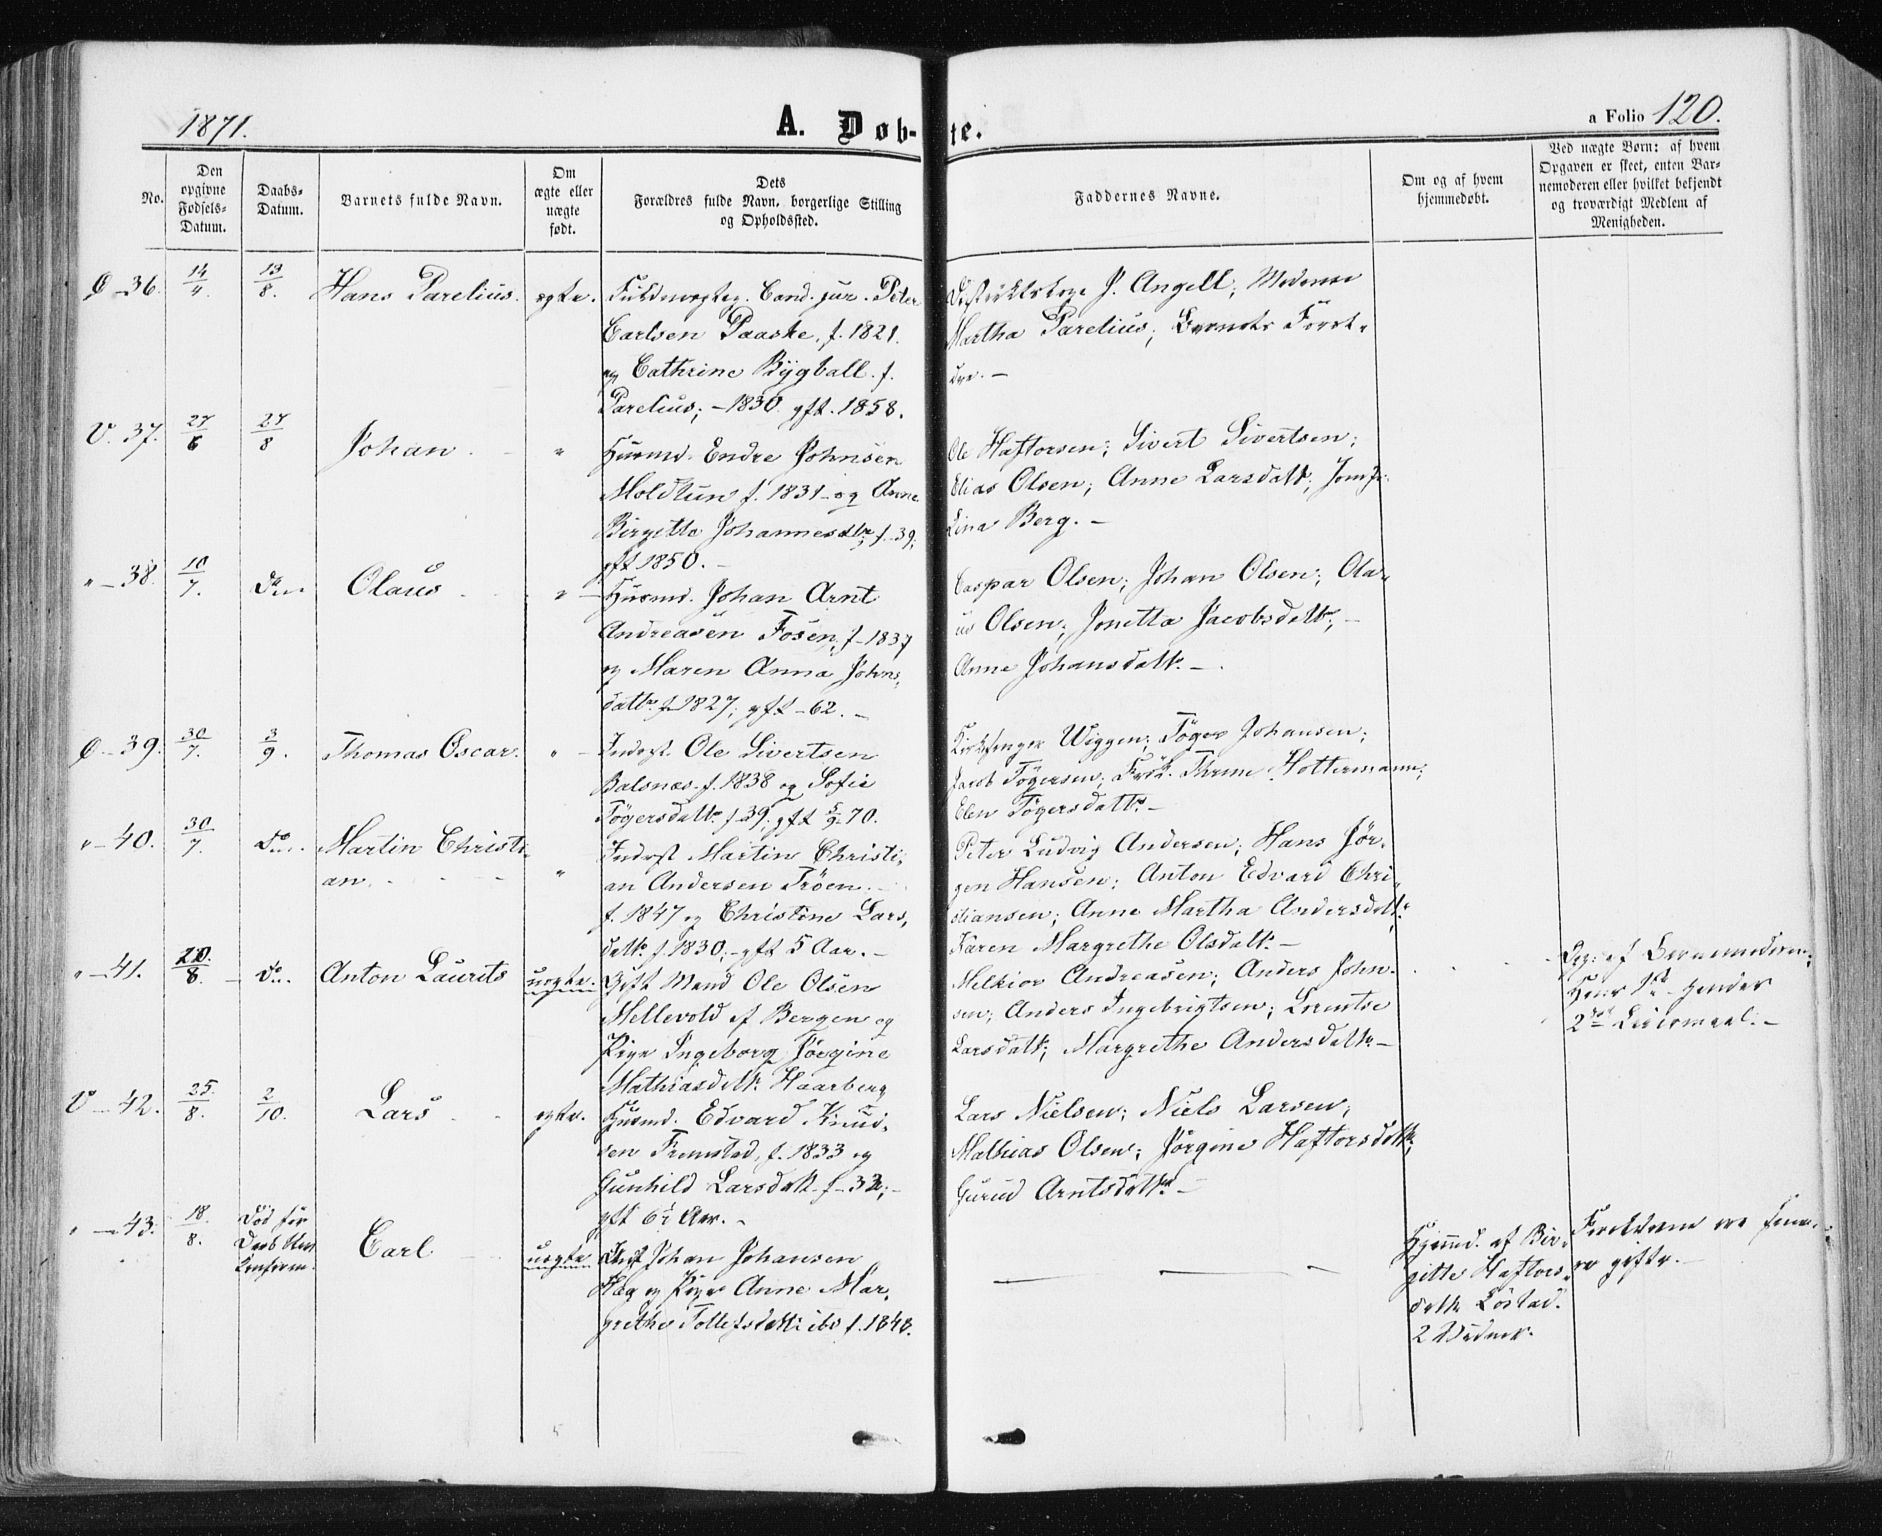 1871.
A. Døb-
te.
a Folio 120.
No.
Den
opgivne
Fødsels-
Datum.
Daabs-
Datum.
Barnets fulde Navn.
Om
ægte eller
uægte
født.
Dets
Forældres fulde Navn, borgerlige Stilling
og Opholdssted.
Faddernes Navne.
Om og af hvem
hjemmedøbt.
Ved uægte Børn: af hvem
Opgaven er skeet, enten Bar-
nemoderen eller hvilket bekjendt
og troværdigt Medlem af
Menigheden.
36. 14/4. 13/8. Hans Parelius. ægte. Fuldmægtig. Cand. jur. Peter
Carlsen Paaske, f. 1821.
og Cathrine Bygball f.
Parelius; - 1830. gft. 1858.
Distriktslæge J. Angell; Madame
Martha Parelius; Barnets Foræl-
dre. -
V. 37. 27/6 27/8 Johan. " Husmd. Endre Johnsen
Moldtun f. 1831 - og Anne
Birgitte Johannesdtr f. 39;
gft 1850. -
Ole Haftorsen; Sivert Sivertsen;
Elias Olsen; Anne Larsdatt; Jomfr.
Lina Berg. -
" - 38. 10/7. Do Olaus " - Husmd. Johan Arnt
Andreasen Fosen, f. 1837
og Maren Anna Johns-
datter f. 1827; gft - 62. -
Caspar Olsen; Johan Olsen; Ola-
us Olsen; Jonetta Jacobsdatt; -
Anne Johansdatt. -
39. 30/7. 3/9. Thomas Oscar. " - Inderst Ole Sivertsen
Balsnæs f. 1838 og Sofie
Tøgersdatt f. 39; gft 5/9 70.
Kirkesanger Wiggen; Tøger Johansen;
Jacob Tøgersen; Frøk. Thrine Holtermann;
Elen Tøgersdatter -
" - 40. 30/7. Do. Martin Christi-
an. " Inderst Martin Christi-
an Andersen Trøen. -
f. 1847 og Christine Lars-
datt f. 1830; - gft 5 Aar. -
Peter Ludvig Andersen; Hans Jør-
gen Hansen; Anton Edvard Chri-
stiansen; Anne Martha Andersdatt.
Karen Margrethe Olsdatt. -
" - 41. 20/8. - Do. Anton Laurits uægte. Gift Mand Ole Olsen
Mellevold af Bergen og
Pige Ingeborg Jørgine
Mathiasdatt. Haarberg
Melkior Andreasen; Anders John-
sen; Anders Ingebrigtsen; Lorentse
Larsdatt; Margrethe Andersdatt. -
Opg: af Barnemoderen;
Hans 1ste hendes
2det Leiermaal. -
V - 42. 25/8. 2/10. Lars ægte. Husmd. Edvard Knud-
sen Fremstad, f. 1833 og
Gunhild Larsdatt. f. - 32; -
gft 6½ Aar. -
Lars Nielsen; Niels Larsen;
Mathias Olsen; Jørgine Haftorsdatt;
Gurud Arntsdatt. -
" - 43. 18/8. Død før
Daab
Confirm. Carl uægte Johan Johansen
Hæg og Pige Anne Mar-
grethe Tollefsdatt. ibd f. 1848.
Hjemmd. af Bir-
gitte Haftors-
datt. Løstad.
2 Vidner.
Forældrene ere sene-
re gifte. -